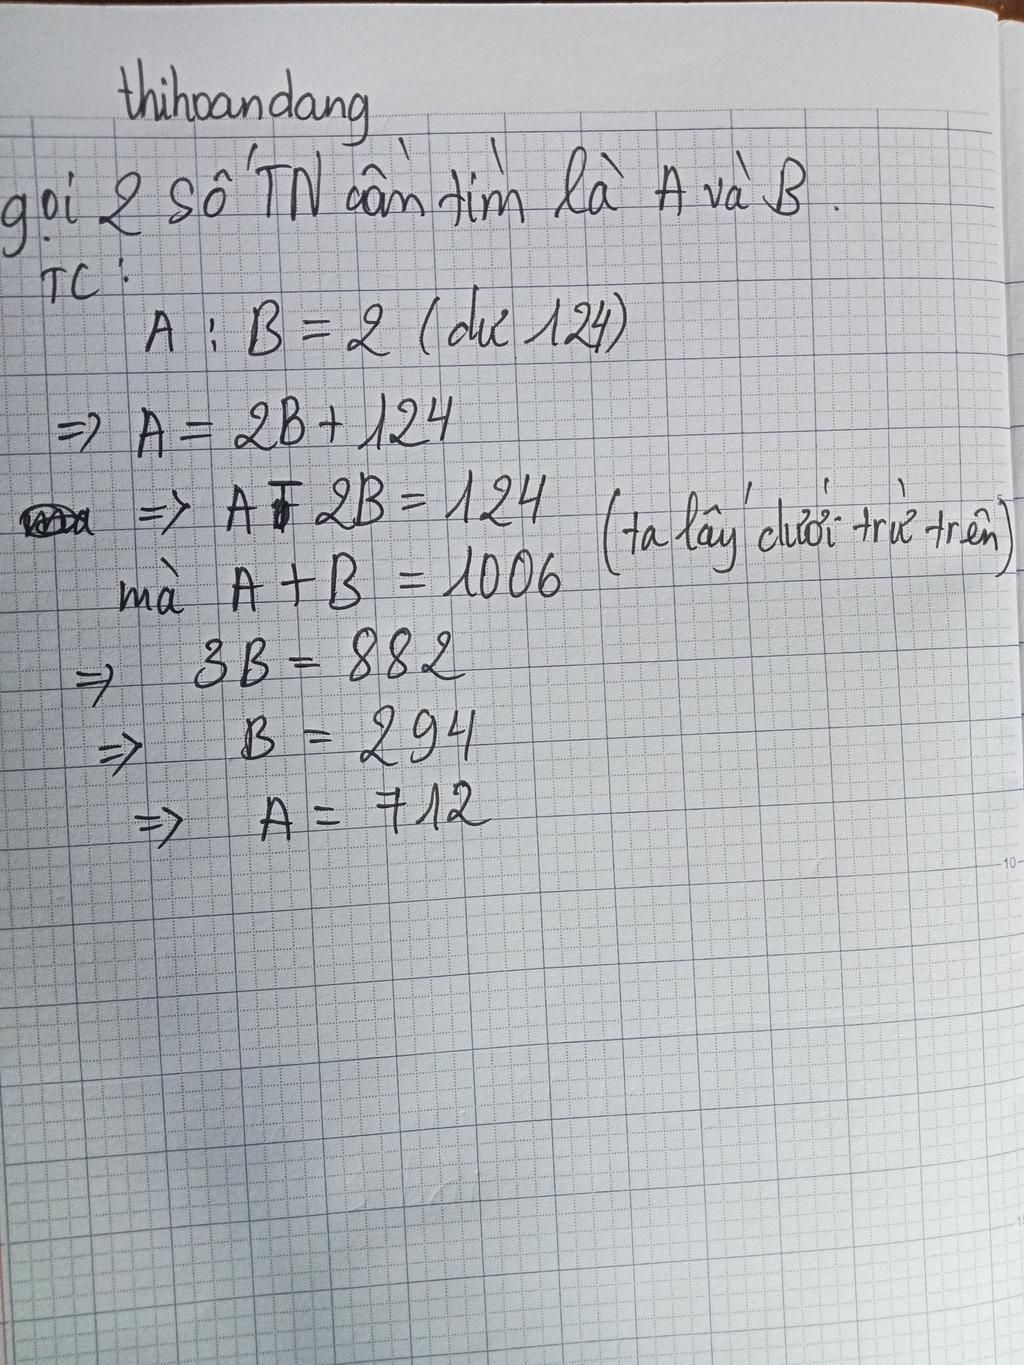 thihoandang
gọi 2 số TN cần tìm là A và B.
TC:
A : B = 2 (dư 124)
=> A = 2B + 124
=> A - 2B = 124 (ta lấy dưới trừ trên)
mà A + B = 1006
=> 3B = 882
=> B = 294
=> A = 712
10